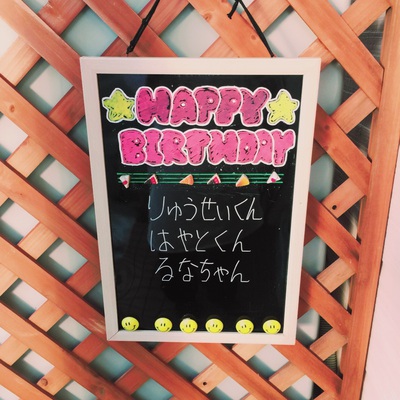 HAPPY
BIRTHDAY
りゅうせいくん
はやとくん
るなちゃん